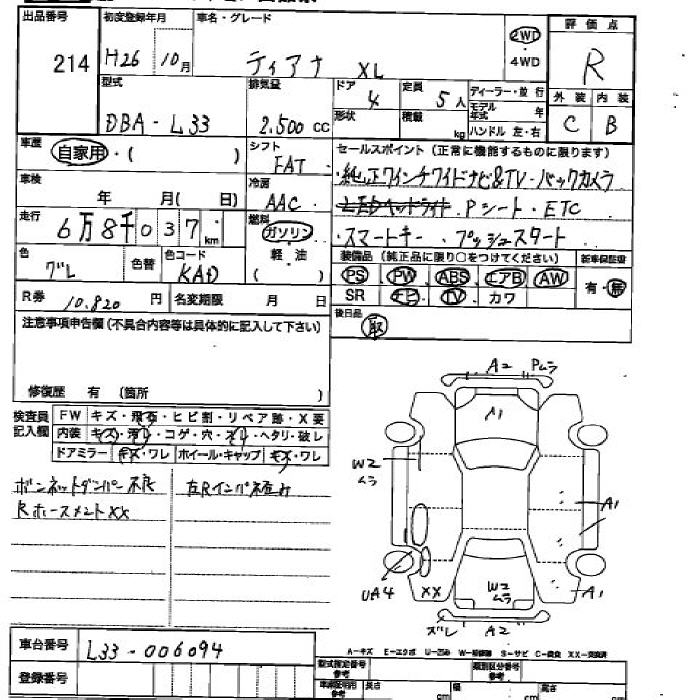 出品番号 初度登録年月 車名・グレード 2WD 評価点
214 H26 10月 ティアナ XL ・4WD R
型式 排気量 ドア 4 定員 5人 ディーラー・並行 外装 内装
DBA-L33 2.500cc 形状 積載 kg モデル年式 年 C B
ハンドル 左・右
車歴 自家用・( ) シフト FAT セールスポイント(正常に機能するものに限ります)
車検 年 月(日) 冷房 AAC ・純正ワインチワイドナビ&TV・バックカメラ
走行 6万8千037km 燃料 ガソリン・ LEDヘッドライト・Pシート・ETC
・スマートキー・プッシュスタート
色 グレ 色替 色コード KAD 軽・油 ( ) 装備品(純正品に限り○をつけてください) 新車保証書
PS PW ABS エアB AW 有・無
R券 10.820円 名変期限 月 日 SR ナビ TV カワ
注意事項申告欄(不具合内容等は具体的に記入して下さい) 後日品 取
修復歴 有(箇所 )
検査員記入欄 FW キズ・飛石・ヒビ割・リペア跡・X要
内装 キズ・汚れ・コゲ・穴・スレ・ヘタリ・破レ
ドアミラー キズ・ワレ ホイール・キャップ キズ・ワレ
ボンネットダンパー不良
Rホースメント XX
A2 Pムラ
A1
W2
ムラ
A1
UA4 XX W2
ムラ A1
ズレ A2
車台番号 L33-006094
A-キズ E-エクボ U-凹み W-補修跡 S-サビ C-腐食 XX-交換済
登録番号 型式指定番号 参考 類別区分番号 参考
長さ cm 幅 cm 高さ cm